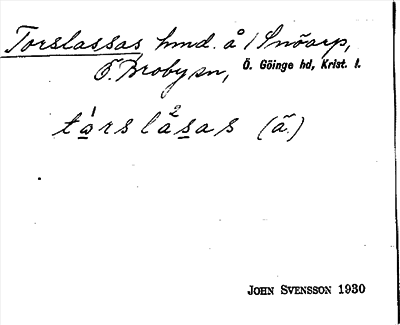 Torslassas hmd. å 1 Snöarp,
Ö. Broby sn, Ö. Göinge hd, Krist. l.
tarslasas (ä.)
JOHN SVENSSON 1930